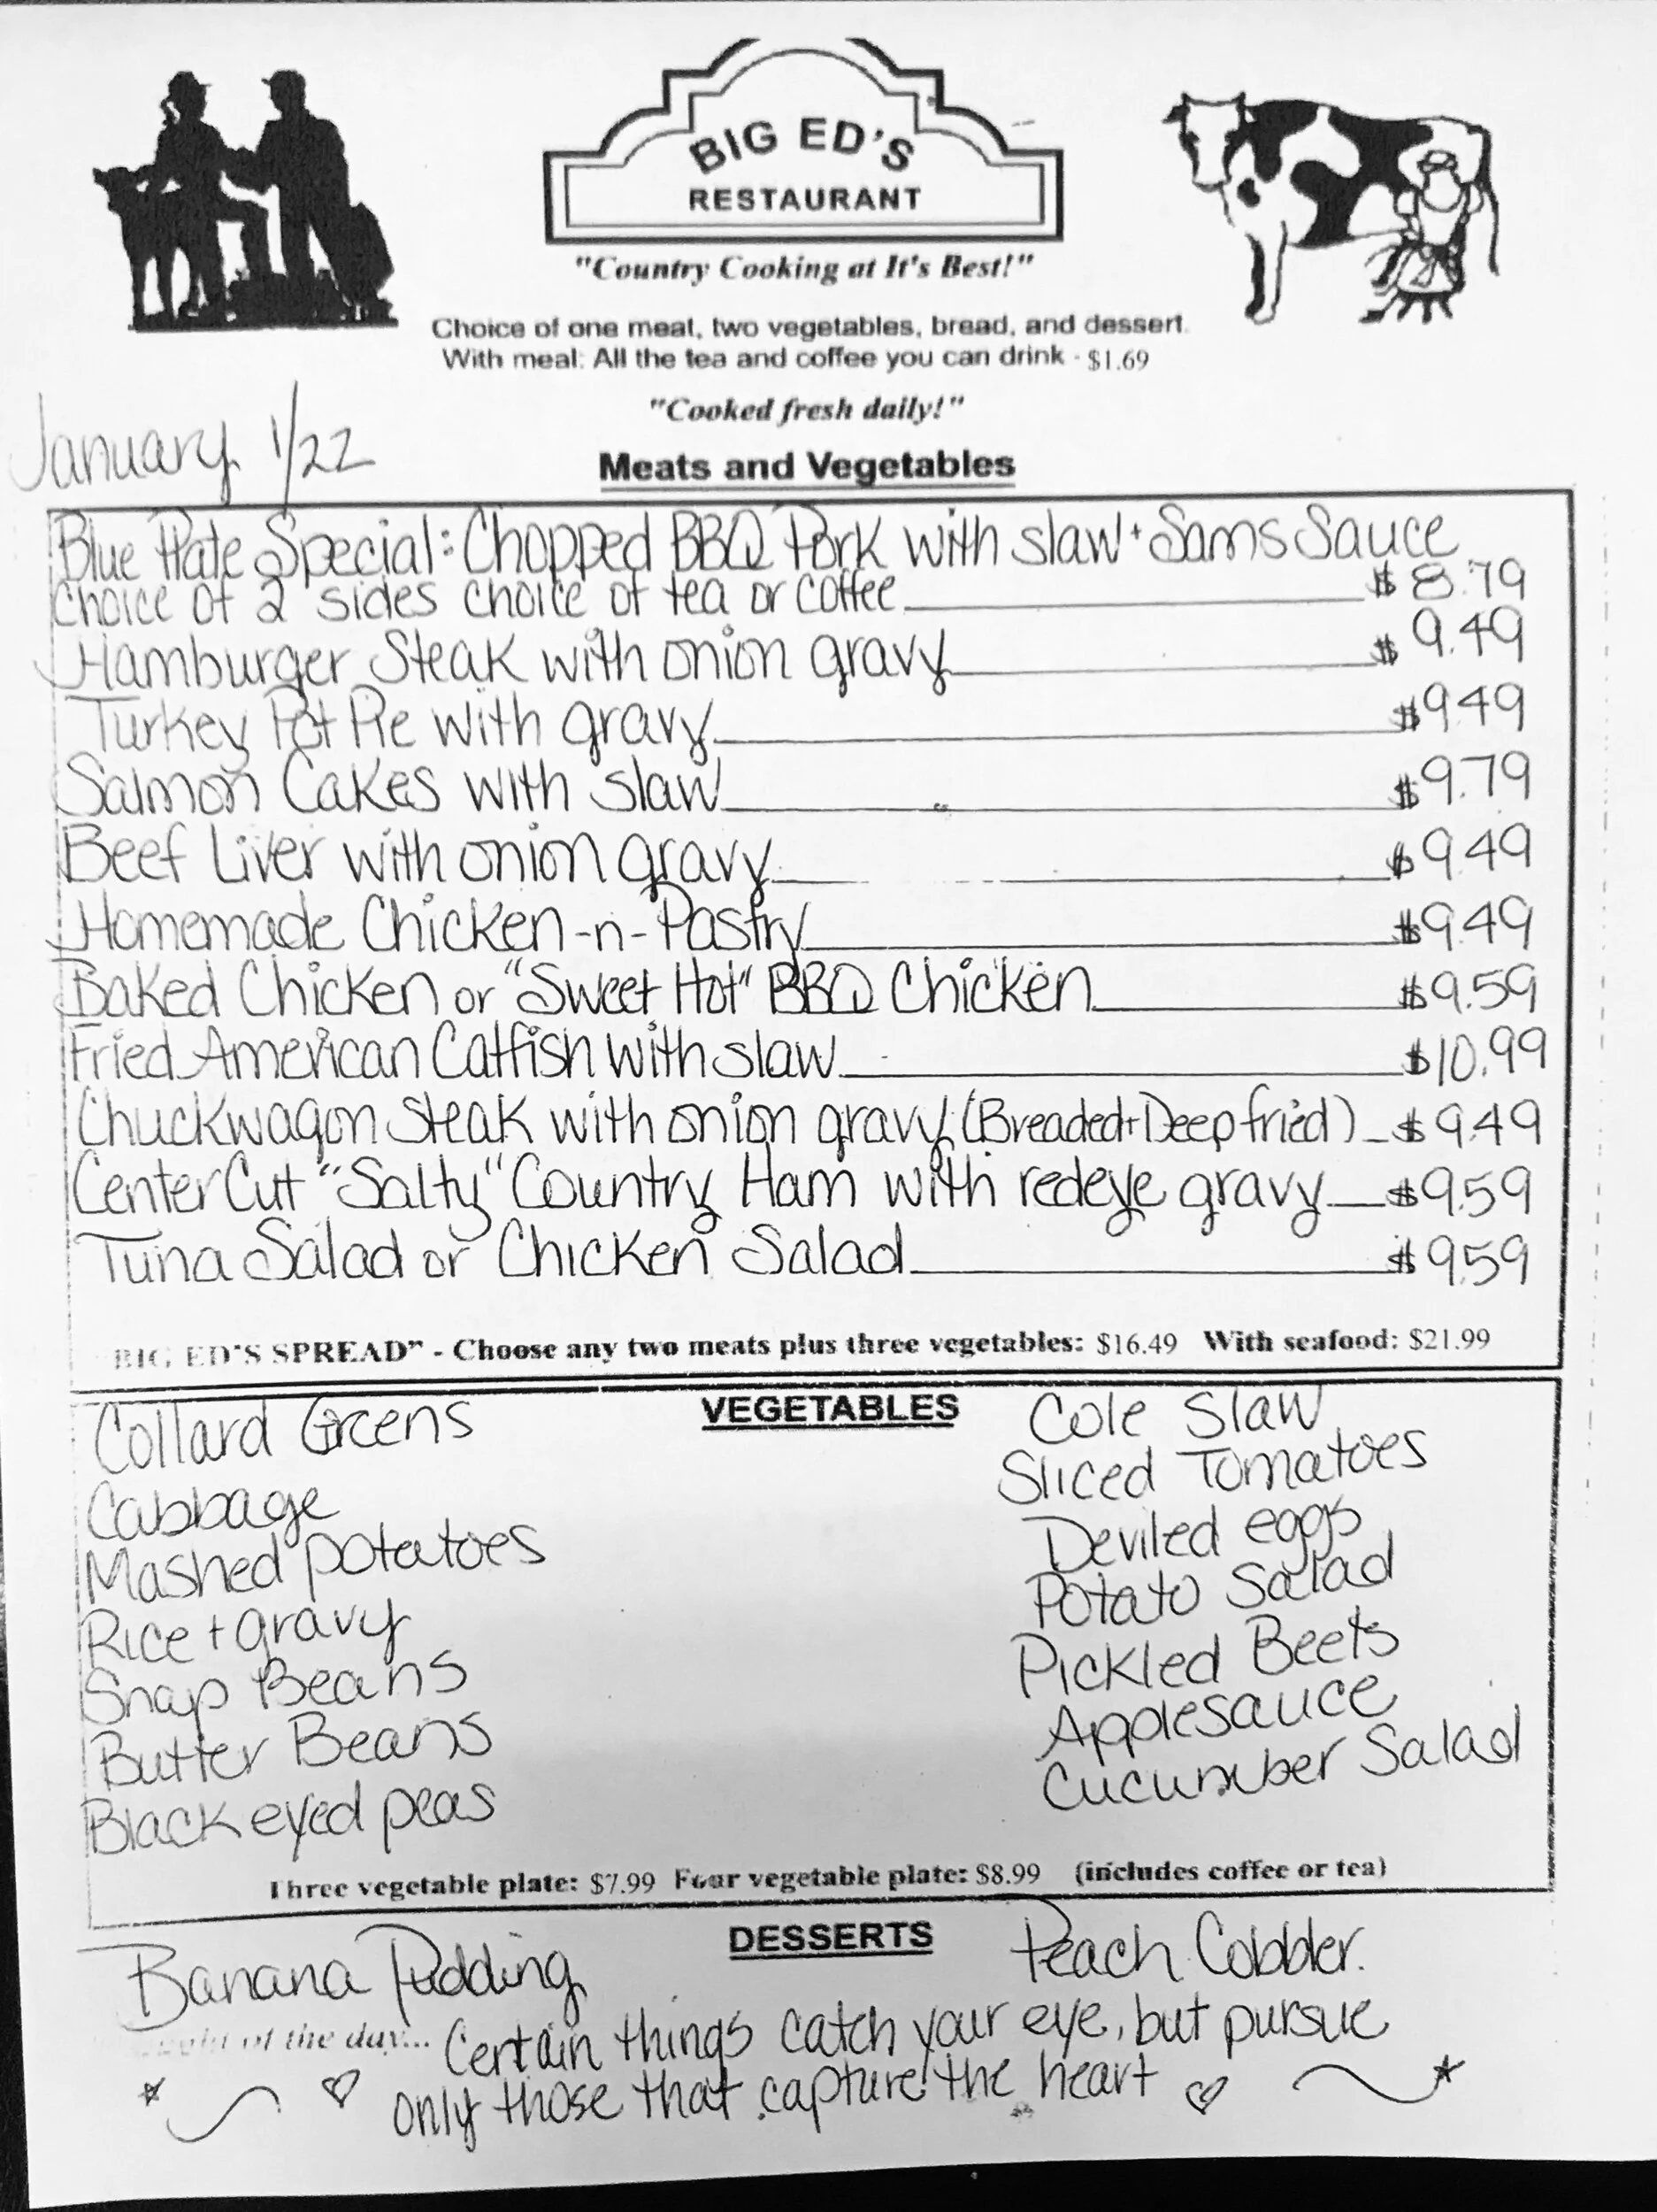 BIG ED'S
RESTAURANT
"Country Cooking at It's Best!"
Choice of one meat, two vegetables, bread, and dessert.
With meal: All the tea and coffee you can drink - $1.69
"Cooked fresh daily!"
January 1/22
Meats and Vegetables
Blue Plate Special: Chopped BBQ Pork with slaw + Sams Sauce
choice of 2 sides choice of tea or coffee $8.79
Hamburger Steak with onion gravy $9.49
Turkey Pot Pie with gravy $9.49
Salmon Cakes with slaw $9.79
Beef Liver with onion gravy $9.49
Homemade Chicken-n-Pastry $9.49
Baked Chicken or "Sweet Hot" BBQ Chicken $9.59
Fried American Catfish with slaw $10.99
Chuckwagon Steak with onion gravy (Breaded + Deep fried) $9.49
Center Cut "Salty" Country Ham with redeye gravy $9.59
Tuna Salad or Chicken Salad $9.59
BIG ED'S SPREAD" - Choose any two meats plus three vegetables: $16.49 With seafood: $21.99
VEGETABLES
Collard Greens
Cabbage
Mashed potatoes
Rice + gravy
Snap Beans
Butter Beans
Black eyed peas
Cole Slaw
Sliced Tomatoes
Deviled eggs
Potato Salad
Pickled Beets
Applesauce
Cucumber Salad
Three vegetable plate: $7.99 Four vegetable plate: $8.99 (includes coffee or tea)
DESSERTS
Banana Pudding
Peach Cobbler.
of the day... Certain things catch your eye, but pursue
only those that capture the heart